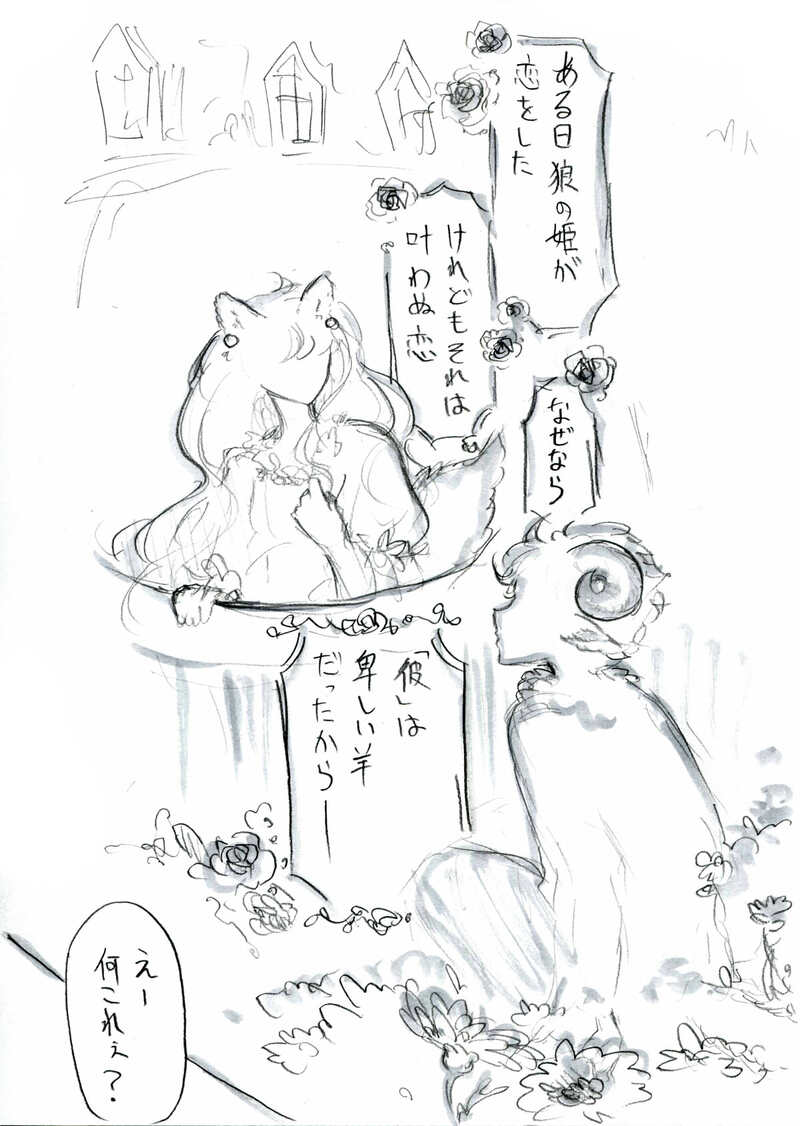 ある日狼の姫が
恋をした
けれどもそれは
叶わぬ恋
なぜなら
「彼」は
卑しい羊
だったから―
えー
何これぇ？